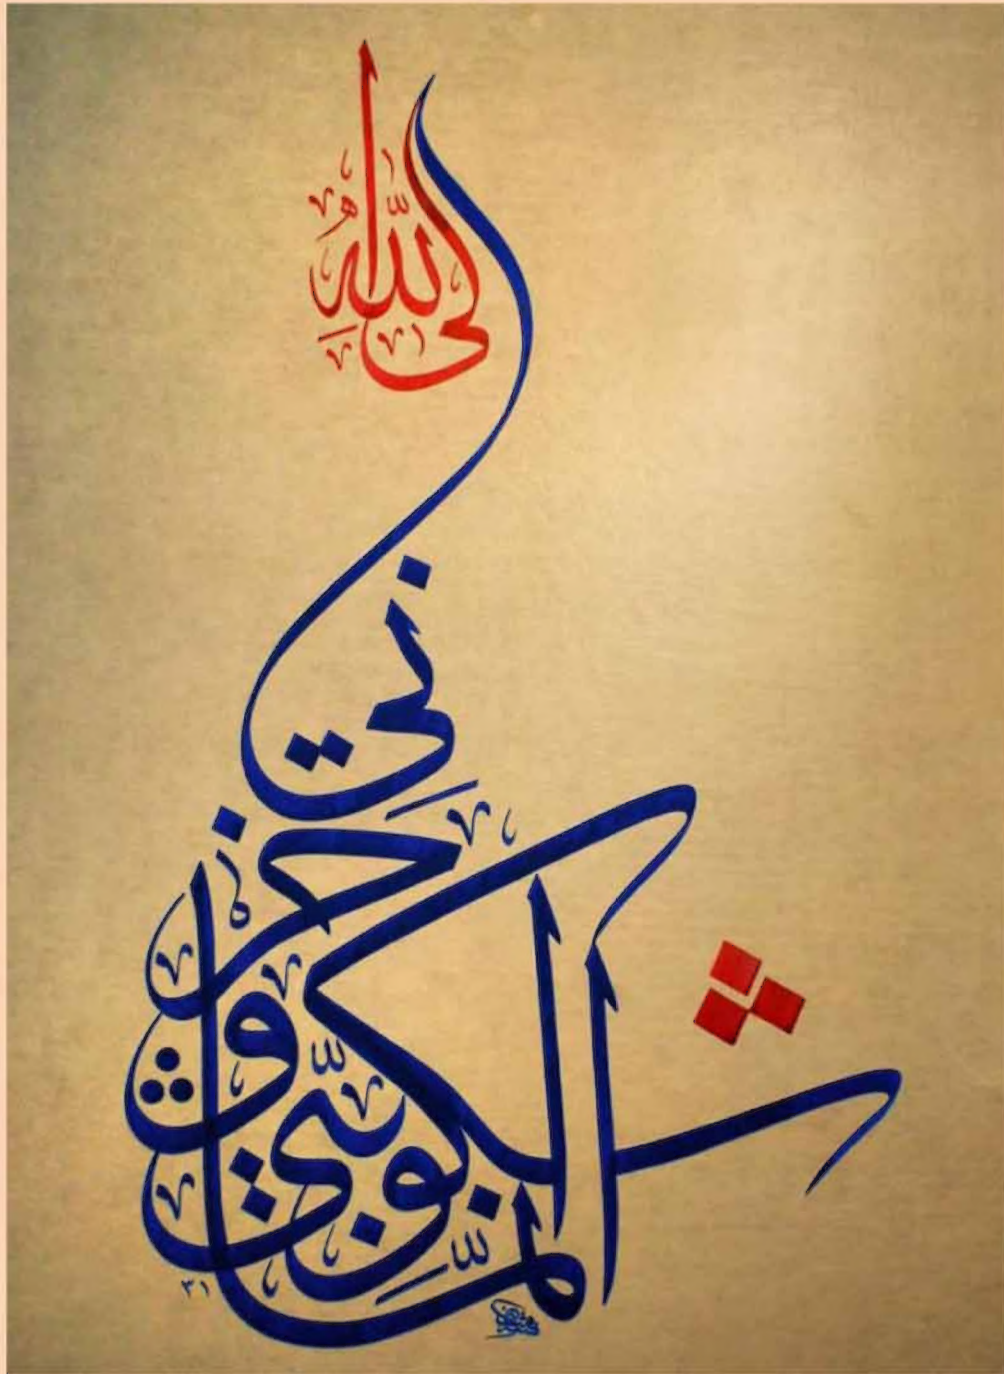 إنما أشكو بثي وحزني إلى الله
٣١